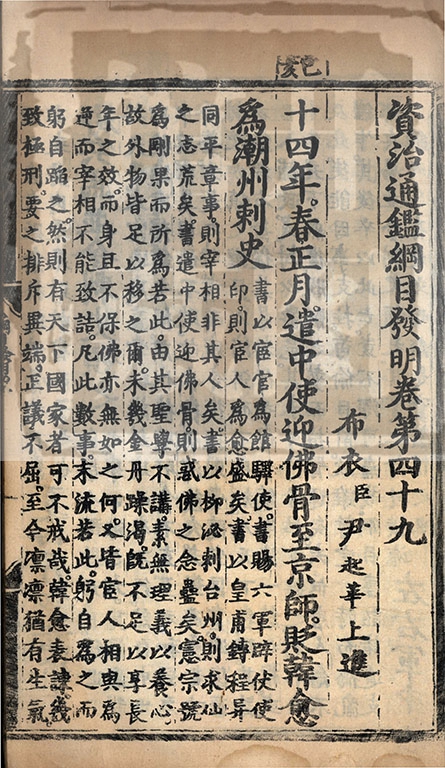 己亥
資治通鑑綱目發明卷第四十九
布衣臣尹起莘上進
十四年。春正月。遣中使迎佛骨至京師。貶韓愈
爲潮州刺史
書以宦官爲館驛使。書賜六軍辟仗使
印。則宦人爲愈盛矣。書以皇甫鎛程异
同平章事。則宰相非其人矣。書以柳泌刺台州。則求仙
之志荒矣。書遣中使迎佛骨。則惑佛之念蠱矣。憲宗號
爲剛果而所爲若此。由其聖學不講。素無理義以養心
故外物皆足以移之爾。未幾金丹躁渴。既不足以享長
年之效。而身且不保。佛亦無如之何。又皆宦人相與爲
逆而宰相不能致詰。凡此數事。末流若此。躬自爲之而
躬自蹈之。然則有天下國家者可不戒哉。韓愈表諫幾
致極刑。要之排斥異端。正議不屈。至今凛凛猶有生氣。